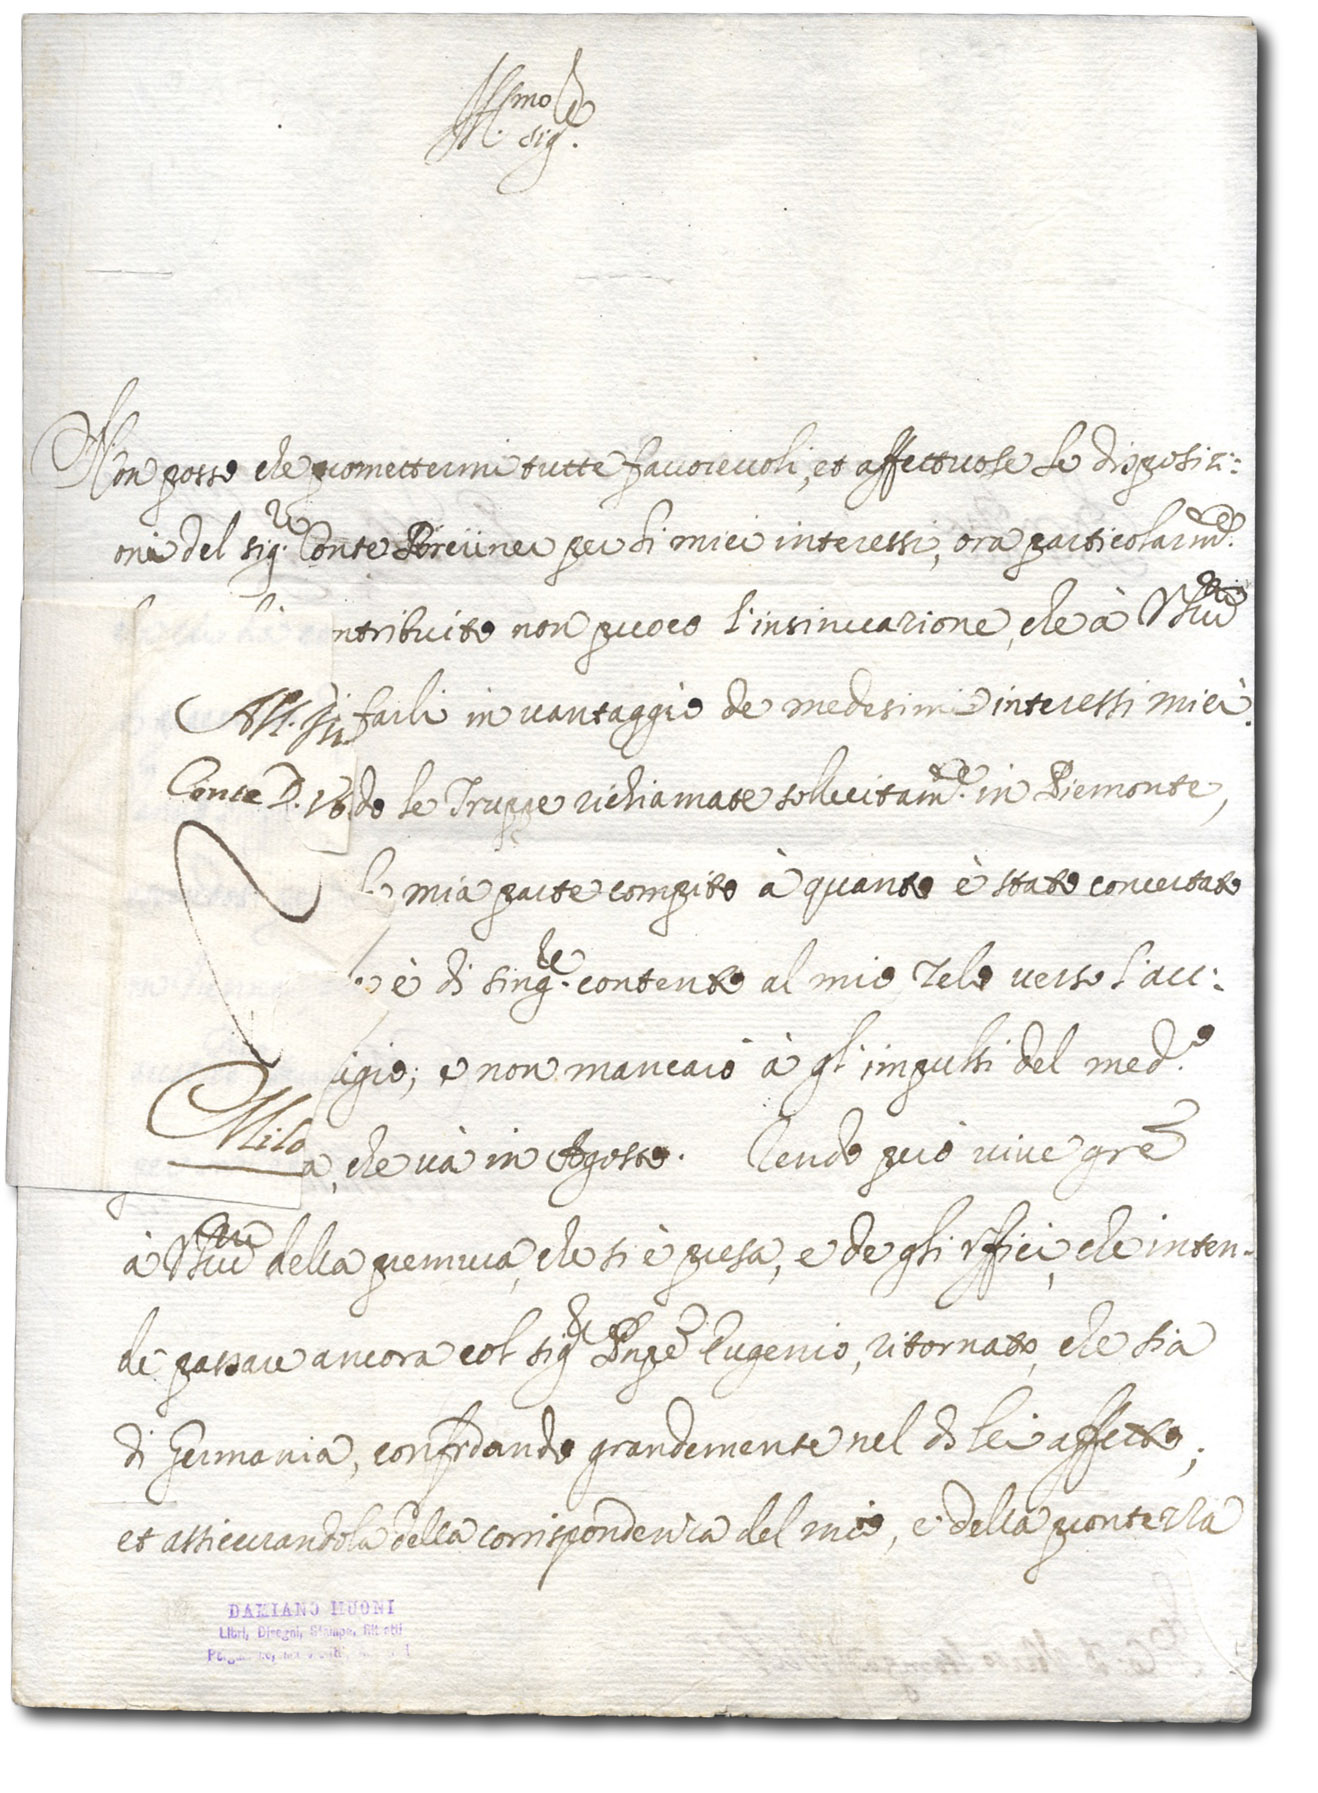 Ill.mo
Sig.re
Non posso che promettermi tutte favorevoli, et affettuose le disposiz:
oni del Sig.re Conte per li miei interessi, ora particolarm.te
ntribuito non puoco l'insinuazione, che à VS Ill.ma
farli in vantaggio de medesimi interessi miei.
do le Truppe richiamate sollecitam.te in Piemonte,
mia parte compito à quanto è stato concertato
è di sing.re contento al mio Zelo verso l'acc:
igio; e non mancarò à gl'impulsi del med.o
a, che và in Agosto. Rendo però vive gre
à VS Ill.ma della premura, che si è presa, e de gli Uffici, che inten-
de passare ancora col Sig.r Pnpe Eugenio, ritornato, che sia
di Germania, confidando grandemente nel di lei affetto;
et assicurandola della corrispondenza del mio, e della prontezza
All. Ill
Conte D.
Mila
DAMIANO MUONI
Libri, Disegni, Stampe, Ritratti